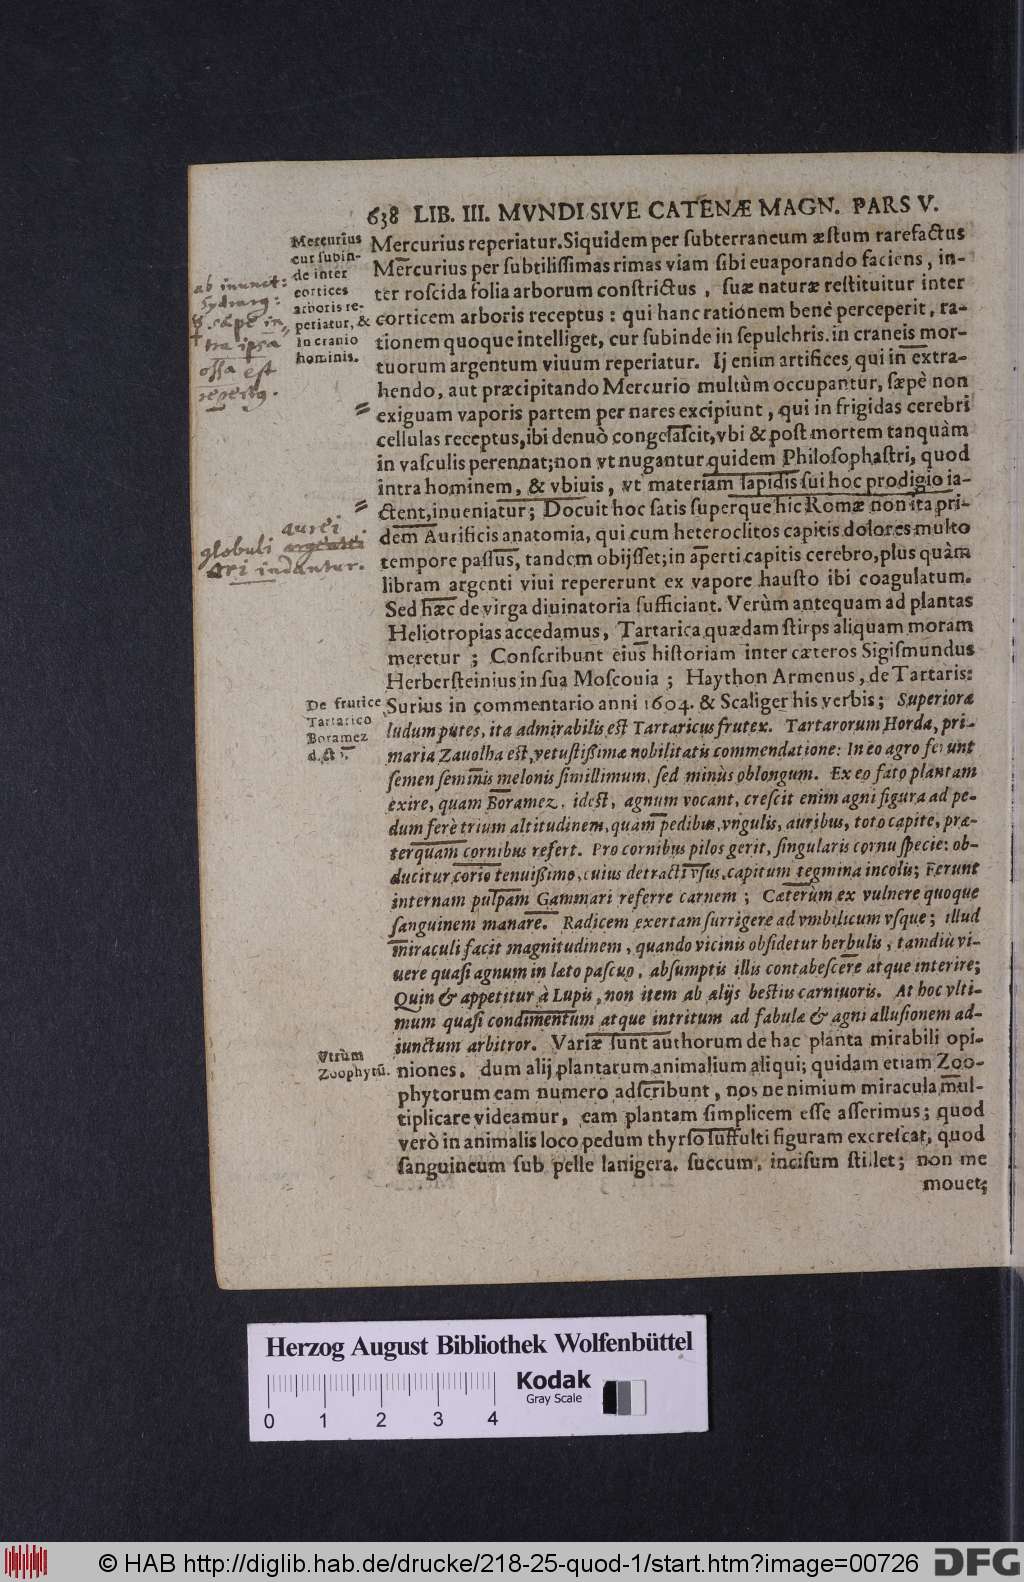 638 LIB. III. MVNDI SIVE CATENÆ MAGN. PARS V.
Mercurius
cur subin-
de inter
cortices
arboris re-
periatur, &
in cranio
hominis.
ab inunct:
hydrarg:
& sæpè in-
tra ipsa
ossa est
repertus.
Mercurius reperiatur. Siquidem per subterraneum æstum rarefactus
Mercurius per subtilissimas rimas viam sibi euaporando faciens, in-
ter roscida folia arborum constrictus, suæ naturæ restituitur inter
corticem arboris receptus: qui hanc rationem benè perceperit, ra-
tionem quoque intelliget, cur subinde in sepulchris in craneis mor-
tuorum argentum viuum reperiatur. Ij enim artifices, qui in extra-
hendo, aut præcipitando Mercurio multùm occupantur, sæpè non
exiguam vaporis partem per nares excipiunt, qui in frigidas cerebri
cellulas receptus, ibi denuò congelascit, vbi & post mortem tanquàm
in vasculis perennat; non vt nugantur quidem Philosophastri, quod
intra hominem, & vbiuis, vt materiam lapidis sui hoc prodigio ia-
ctent, inueniatur; Docuit hoc satis superque hic Romæ non ita pri-
dem Aurificis anatomia, qui cum heteroclitos capitis dolores multo
tempore passus, tandem obijsset; in aperti capitis cerebro, plus quàm
libram argenti viui repererunt ex vapore hausto ibi coagulatum.
aurei
globuli
ori indantur.
Sed hæc de virga diuinatoria sufficiant. Verùm antequam ad plantas
Heliotropias accedamus, Tartarica quædam stirps aliquam moram
meretur; Conscribunt eius historiam inter cæteros Sigismundus
Herbersteinius in sua Moscouia; Haython Armenus, de Tartaris:
De frutice
Tartarico
Boramez
d. est
Surius in commentario anni 1604. & Scaliger his verbis; Superiora
ludum putes, ita admirabilis est Tartaricus frutex. Tartarorum Horda, pri-
maria Zauolha est, vetustißimæ nobilitatis commendatione: In eo agro ferunt
semen seminis melonis simillimum, sed minùs oblongum. Ex eo sato plantam
exire, quam Boramez, idest, agnum vocant, crescit enim agni figura ad pe-
dum ferè trium altitudinem, quam pedibus, vngulis, auribus, toto capite, præ-
terquam cornibus refert. Pro cornibus pilos gerit, singularis cornu specie: ob-
ducitur corio tenuißimo, cuius detracti vsus, capitum tegmina incolis; Ferunt
internam pulpam Gammari referre carnem; Cæterùm ex vulnere quoque
sanguinem manare. Radicem exertam surrigere ad vmbilicum vsque; illud
miraculi facit magnitudinem, quando vicinis obsidetur herbulis, tamdiù vi-
uere quasi agnum in læto pascuo, absumptis illis contabescere atque interire;
Quin & appetitur à Lupis, non item ab alijs bestiis carniuoris. At hoc vlti-
mum quasi condimentum atque intritum ad fabulæ & agni allusionem ad-
iunctum arbitror. Variæ sunt authorum de hac planta mirabili opi-
Vtrùm
Zoophytū.
niones. dum alij plantarum animalium aliqui; quidam etiam Zoo-
phytorum eam numero adscribunt, nos ne nimium miracula mul-
tiplicare videamur, eam plantam simplicem esse asserimus; quod
verò in animalis loco pedum thyrso suffulti figuram excrescat, quod
sanguineum sub pelle lanigera, succum, incisum stillet; non me
mouet;
Herzog August Bibliothek Wolfenbüttel
Kodak
Gray Scale
0 1 2 3 4
© HAB http://diglib.hab.de/drucke/218-25-quod-1/start.htm?image=00726
DFG